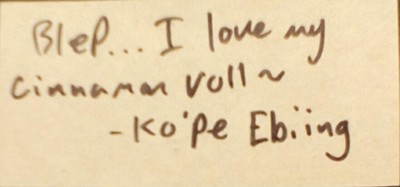 Blep... I love my
cinnamon roll ~
- Ko'pe Ebiing